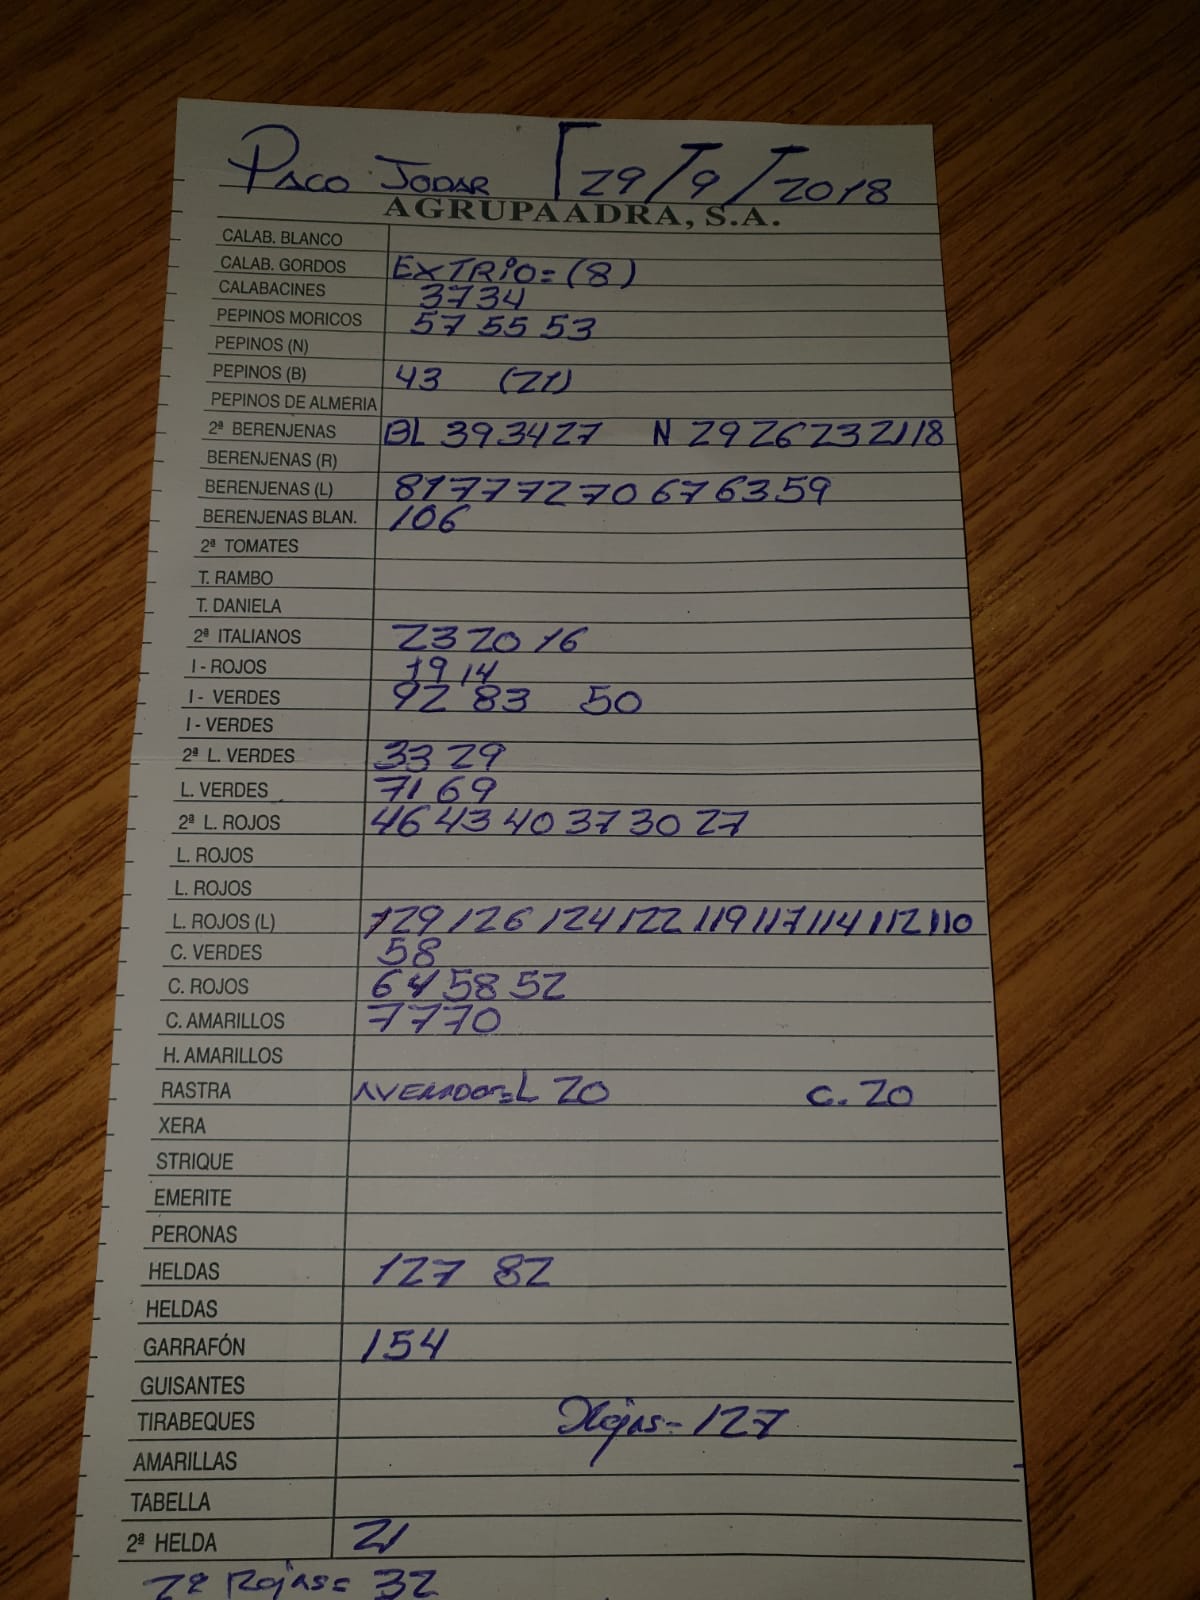 PACO JODAR 29/9/2018
AGRUPAADRA, S.A.
CALAB. BLANCO
CALAB. GORDOS EXTRIO=(8)
CALABACINES 37 34
PEPINOS MORICOS 57 55 53
PEPINOS (N)
PEPINOS (B) 43 (21)
PEPINOS DE ALMERIA
2ª BERENJENAS BL 39 34 27 N 29 26 23 21 18
BERENJENAS (R)
BERENJENAS (L) 81 77 72 70 67 63 59
BERENJENAS BLAN. 106
2ª TOMATES
T. RAMBO
T. DANIELA
2ª ITALIANOS 23 20 16
I - ROJOS 19 14
I - VERDES 92 83 50
I - VERDES
2ª L. VERDES 33 29
L. VERDES 71 69
2ª L. ROJOS 46 43 40 37 30 27
L. ROJOS
L. ROJOS
L. ROJOS (L) 129 126 124 122 119 117 114 112 110
C. VERDES 58
C. ROJOS 64 58 52
C. AMARILLOS 77 70
H. AMARILLOS
RASTRA L 20 C. 20
XERA
STRIQUE
EMERITE
PERONAS
HELDAS 127 82
HELDAS
GARRAFÓN 154
GUISANTES
TIRABEQUES Rojas - 127
AMARILLAS
TABELLA
2ª HELDA 21
2ª Rojas = 32